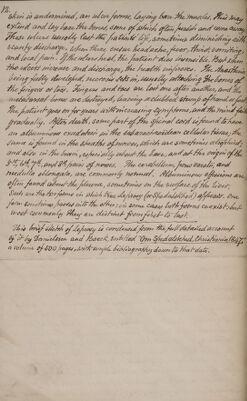 12.
skin is undermined, an ulcer forms, laying bare the muscles. This may
extend and lay bare the bones, some of which often perish and come away.
These ulcers usually last the patient's life, sometimes diminishing with
scanty discharge, when there ensue headache, fever, thirst, vomiting,
and local pain. If the ulcers heal, the patient dies nevertheless. But when
the ulcers reopen and discharge, the health improves. The Anaesthesia
being fully developed, necrosis sets in, usually attacking the bones of
the fingers or toes. Fingers and toes are lost one after another, and the
metacarpal bones are destroyed, leaving a clubbed stump of hand or foot.
The patient goes on for years with increasing symptoms, and the mind fails
gradually. After death, some part of the spinal cord is found to have
an albuminous exudation in the subarachnoidean cellular tissue; the
same is found in the sheaths of nerves, which are sometimes obliterated;
and also in the brain, especially about the base, and at the origin of the
5th, 6th, 7th, and 8th pairs of nerves. The cerebellum, pons varolii, and
medulla oblongata, are commonly normal. Albuminous effusions are
often found about the pleura, sometimes on the surface of the liver.
Such are the two forms in which true Leprosy (or Spedalskhed) appears. One
form sometimes passes into the other; in some cases both forms co-exist: but
most commonly they are distinct from first to last.
This brief sketch of Leprosy is condensed from the full detailed account
of it by Danielssen and Boeck, entitled "Om Spedalskhed, Christiania 1847",
a volume of 500 pages, with ample bibliography down to that date.